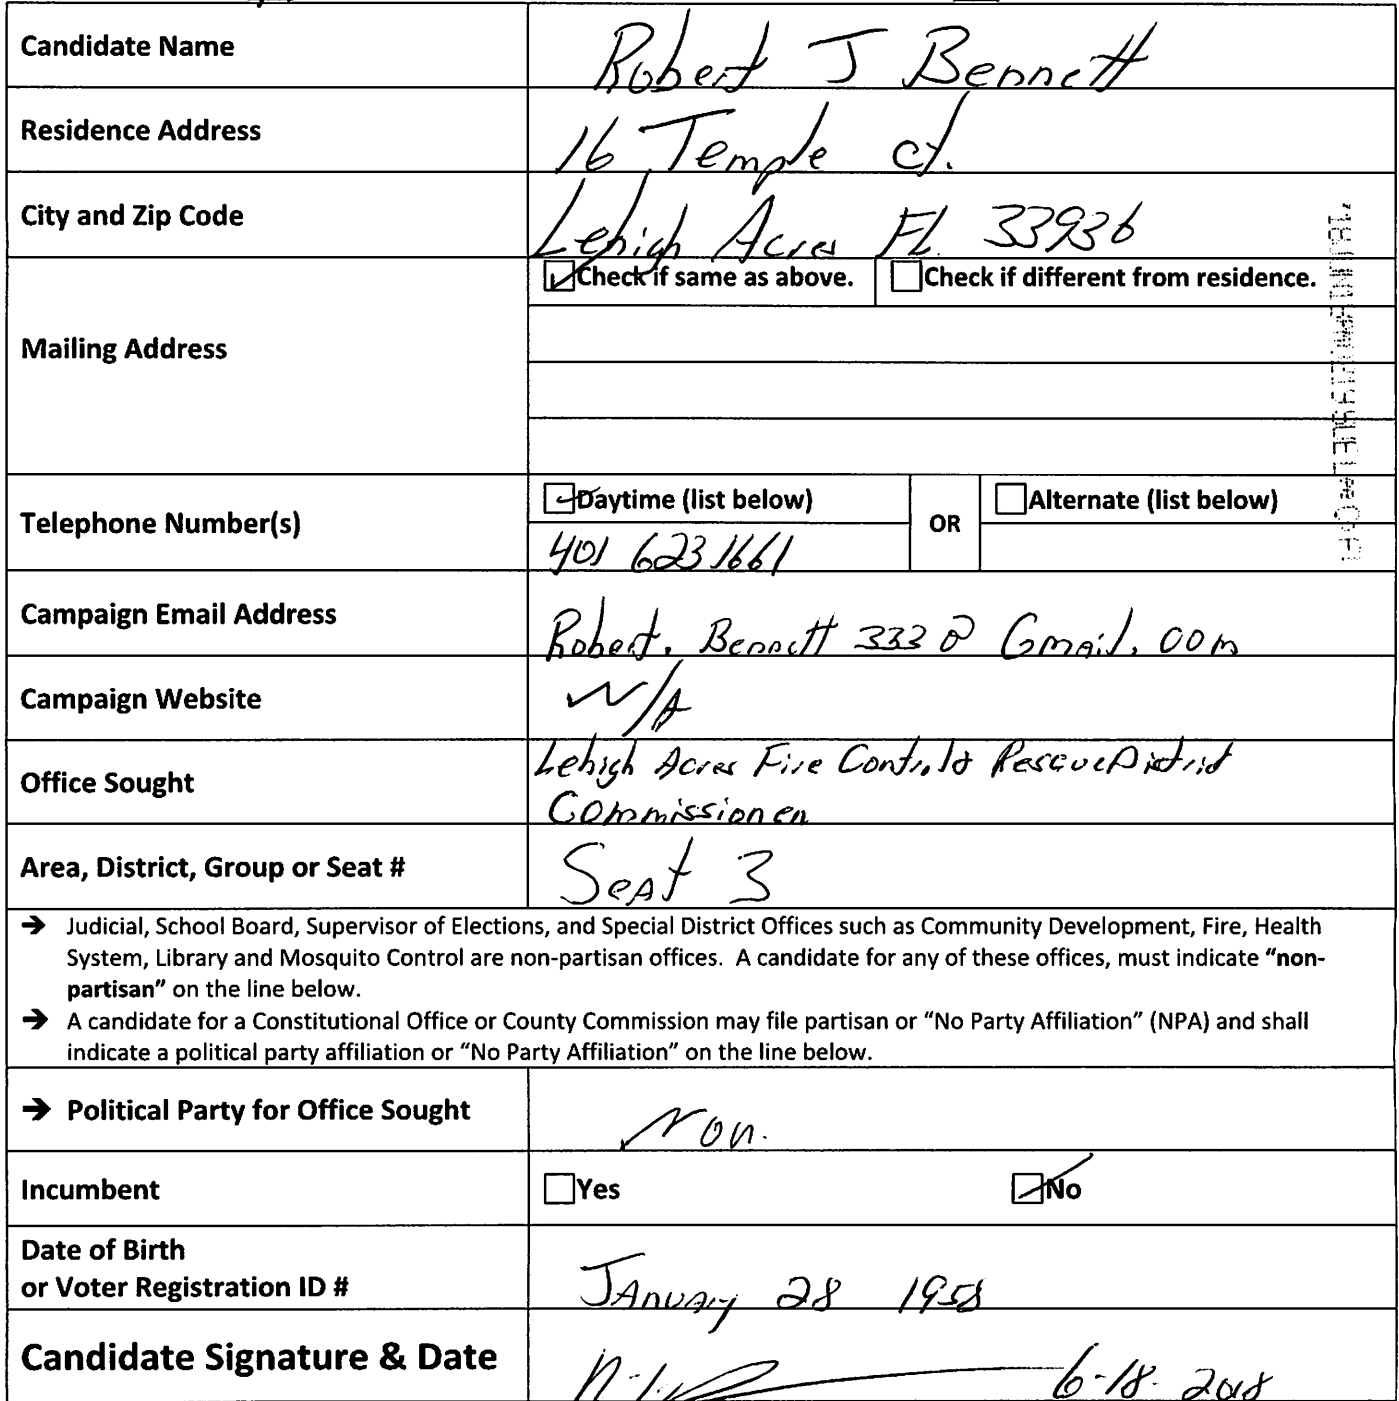 Candidate Name Robert J Bennett
Residence Address 16 Temple ct.
City and Zip Code Lehigh Acres FL. 33936
Check if same as above. Check if different from residence.
Mailing Address
Daytime (list below) OR Alternate (list below)
Telephone Number(s)
401 6231661
Campaign Email Address Robert. Bennett 333 @ Gmail. com
Campaign Website N/A
Office Sought Lehigh Acres Fire Control & Rescue District
Commissioner
Area, District, Group or Seat # Seat 3
→ Judicial, School Board, Supervisor of Elections, and Special District Offices such as Community Development, Fire, Health
System, Library and Mosquito Control are non-partisan offices. A candidate for any of these offices, must indicate "non-
partisan" on the line below.
→ A candidate for a Constitutional Office or County Commission may file partisan or "No Party Affiliation" (NPA) and shall
indicate a political party affiliation or "No Party Affiliation" on the line below.
→ Political Party for Office Sought Non.
Incumbent Yes No
Date of Birth
or Voter Registration ID # January 28 1958
Candidate Signature & Date 6-18-2018